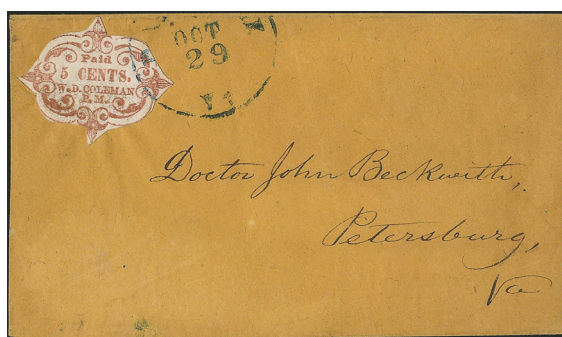 Paid
5 CENTS.
W. D. COLEMAN
P. M.
OCT
29
VA
Doctor John Beckwith,
Petersburg,
Va